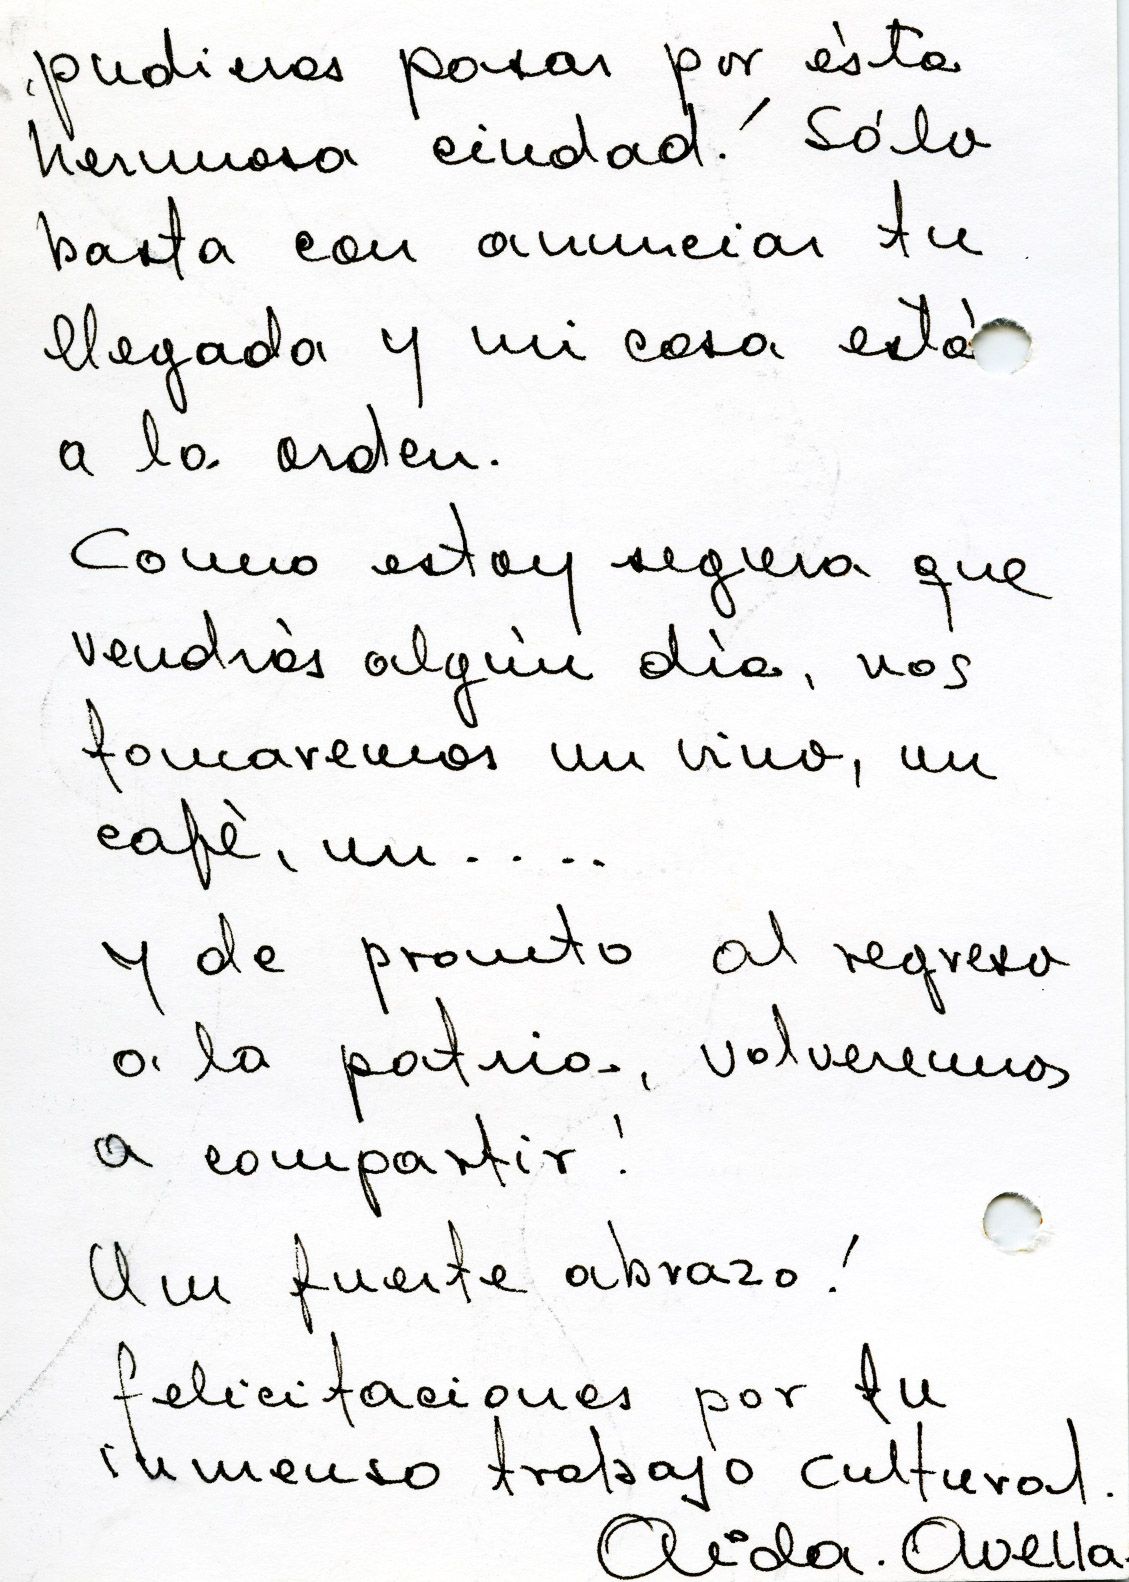 pudieras pasar por ésta
hermosa ciudad! Sólo
basta con anunciar tu
llegada y mi casa está
a la orden.
Como estoy segura que
vendrás algún día, nos
tomaremos un vino, un
café, un.....
y de pronto al regreso
a la patria, volveremos
a compartir!
Un fuerte abrazo!
felicitaciones por tu
inmenso trabajo cultural.
Aída. Avella.